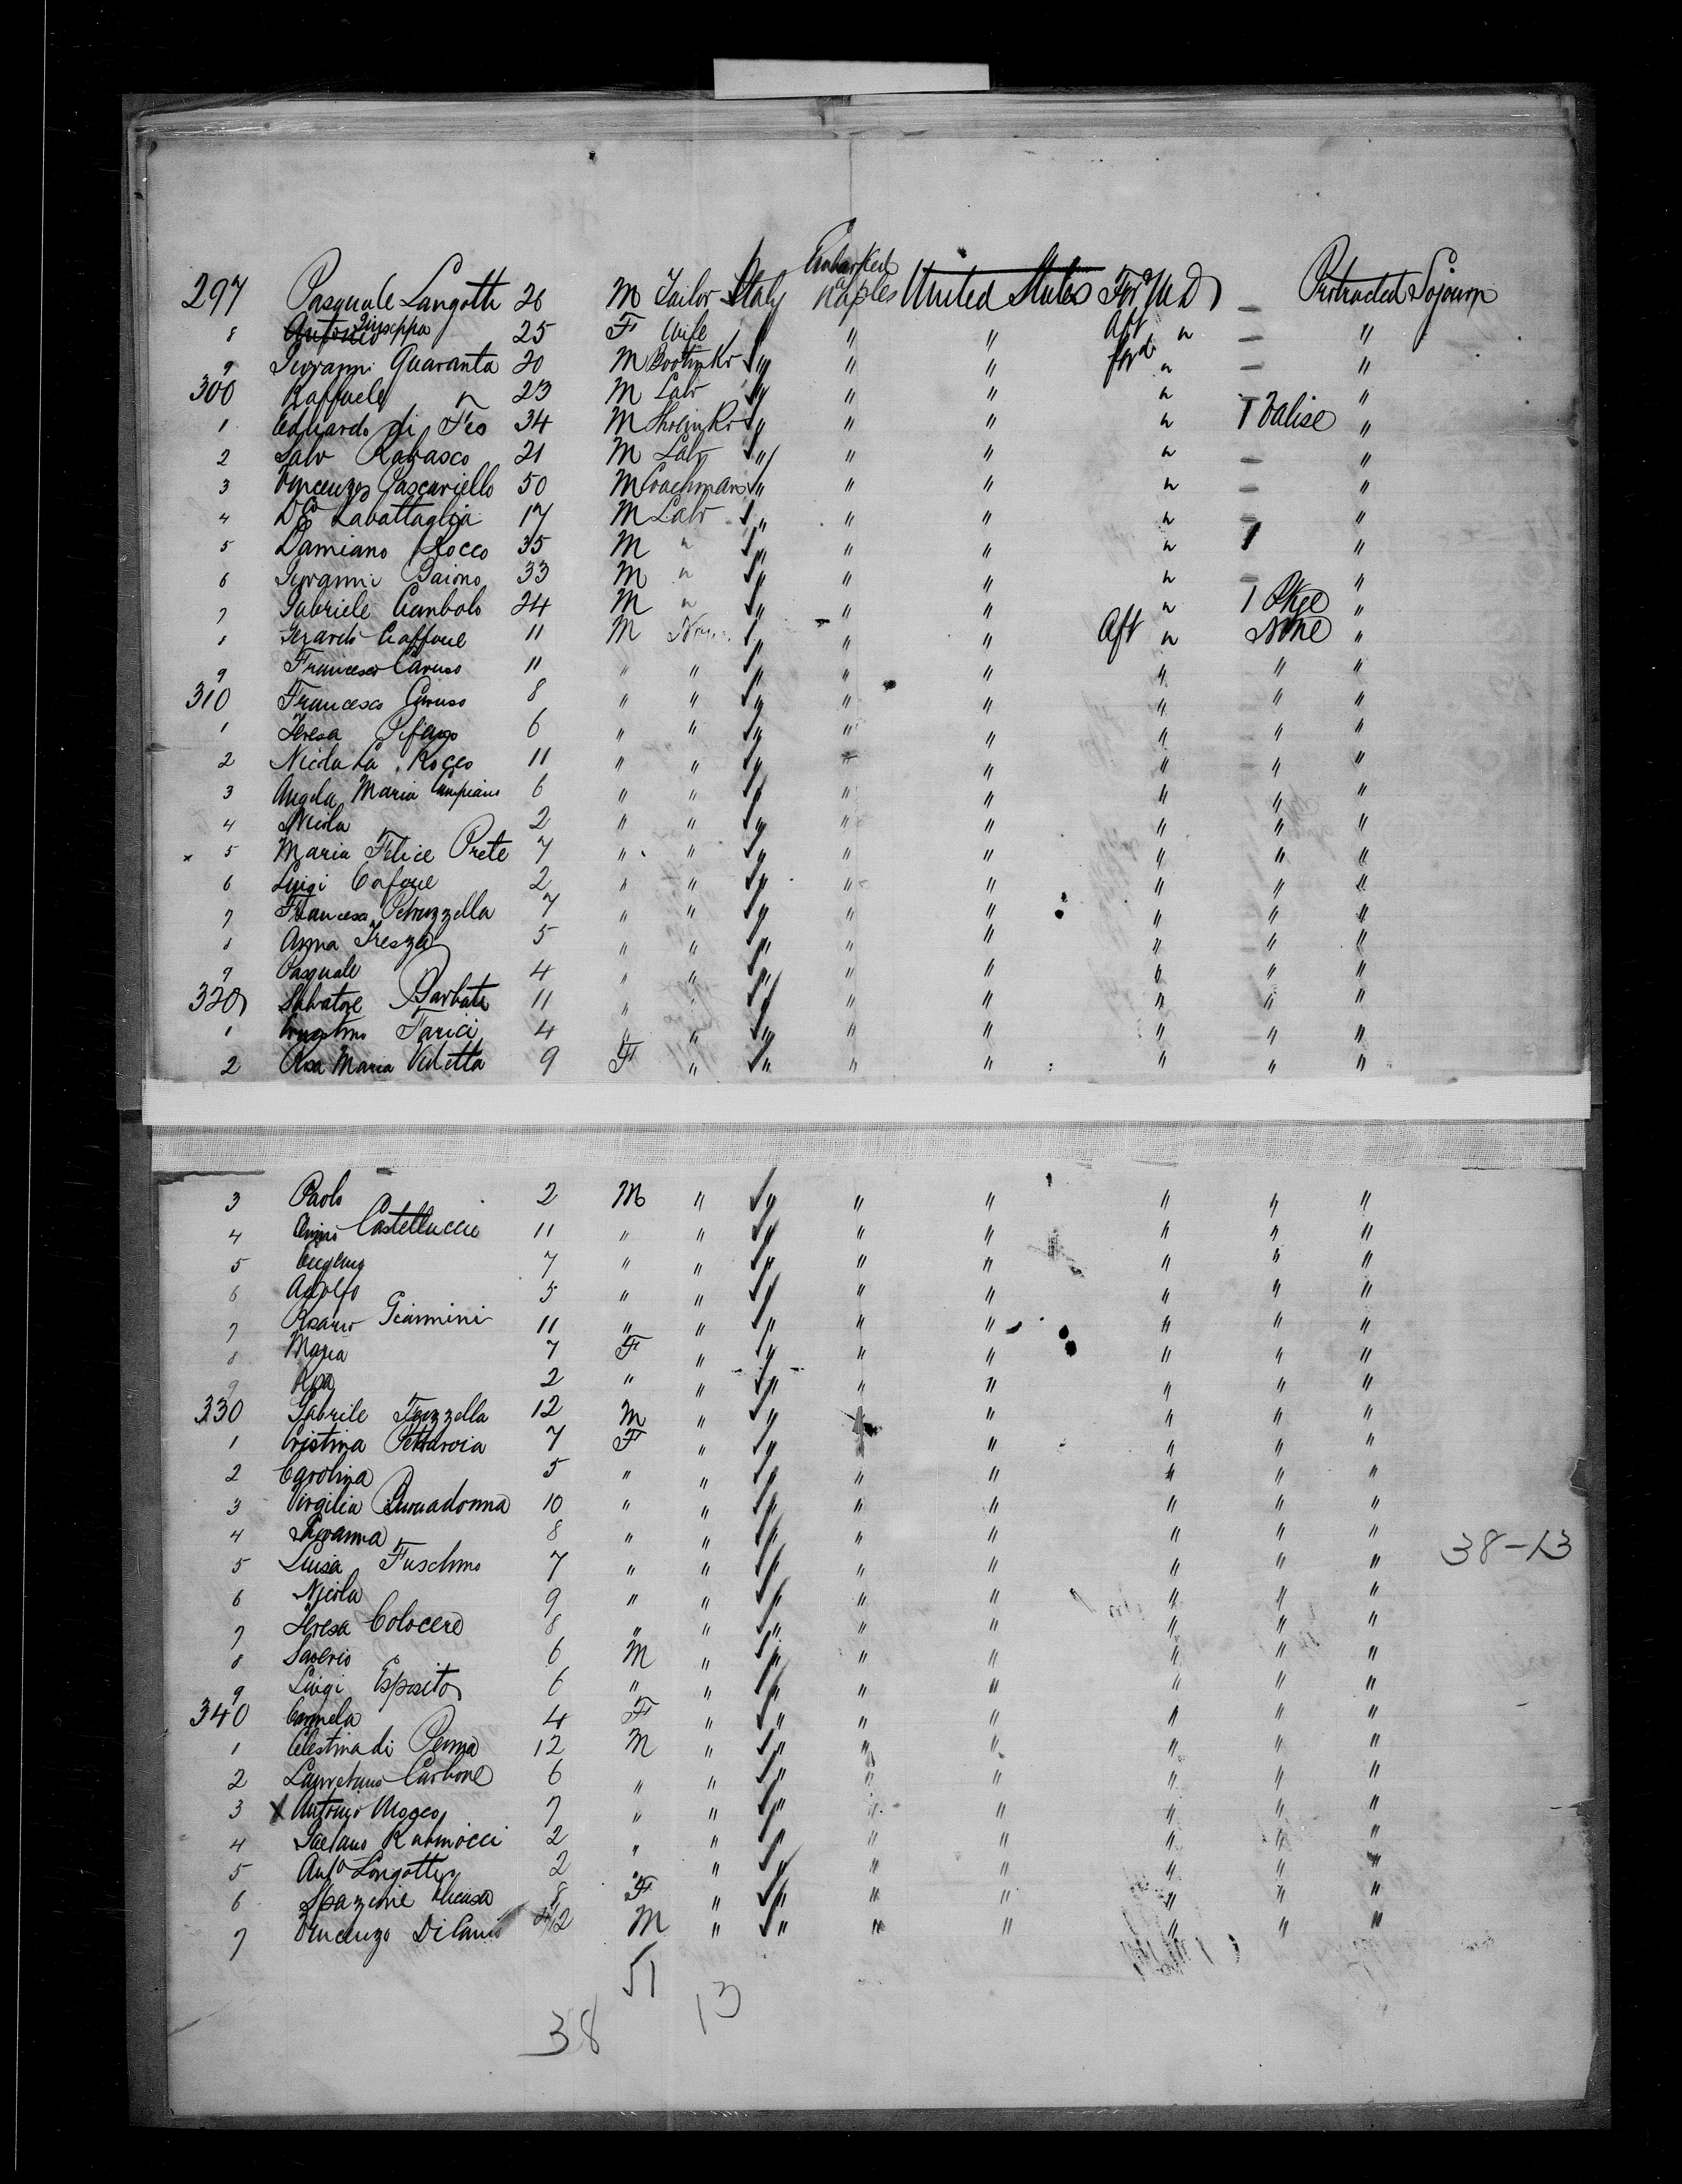 Embarked
297 Pasquale Langotti 26 M Tailor Italy Naples United States For'd M D — Protracted Sojourn
8 Antonio Giuseppa 25 F Wife " " " Aft " — "
9 Giovanni Quaranta 20 M Bootmkr " " " ford " — "
300 Raffaele " 23 M Labr " " " " — "
1 Eduardo di Feo 34 M Shoemkr " " " " 1 Valise "
2 Salv Rabasco 21 M Labr " " " " — "
3 Vincenzo Pascariello 50 M Coachman " " " " — "
4 Labattaglia 17 M Labr " " " " — "
5 Damiano Rocco 35 M " " " " " 1 "
6 Giovanni Gaiono 33 M " " " " " — "
7 Gabriele Ciambolo 24 M " " " " " 1 Pkge "
8 Gerardo Caffone 11 M None " " " Aft " None "
9 Francesco Caruso 11 " " " " " " " "
310 Francesco Caruso 8 " " " " " " " "
1 Teresa 6 " " " " " " " "
2 Nicola La Rocco 11 " " " " " " " "
3 Angela Maria Campiano 6 " " " " " " " "
4 Nicola 2 " " " " " " " "
x 5 Maria Felice Prete 7 " " " " " " " "
6 Luigi Cafone 2 " " " " " " " "
7 Francesca Petruzzella 7 " " " " " " " "
8 Anna Tresza 5 " " " " " " " "
9 Pasquale 4 " " " " " " " "
320 Salvatore Barbato 11 " " " " " " " "
1 Farici 4 " " " " " " " "
2 Rosa Maria Viletta 9 F " " " " " " "
3 Paolo 2 M " " " " " " "
4 Castelluccio 11 " " " " " " " "
5 7 " " " " " " " "
6 Adolfo 5 " " " " " " " "
7 Rosario Giannini 11 " " " " " " " "
8 Maria 7 F " " " " " " "
9 Rosa 2 " " " " " " " "
330 Gabrile Frizzella 12 M " " " " " " "
1 Cristina Pettaroia 7 F " " " " " " "
2 Carolina 5 " " " " " " " "
3 Virgilia Buonadonna 10 " " " " " " " "
4 Giovanna 8 " " " " " " " "
38-13
5 Luisa Fuschino 7 " " " " " " " "
6 Nicola 9 " " " " " " " "
7 Teresa Colocero 8 " " " " " " " "
8 Saverio 6 M " " " " " " "
9 Luigi Esposito 6 " " " " " " " "
340 Carmela 4 F " " " " " " "
1 Celestina di Penna 12 M " " " " " " "
2 Lauretano Carbone 6 " " " " " " " "
3 x Antonio Mogeo 7 " " " " " " " "
4 Gaetano Rubinocci 2 " " " " " " " "
5 Anto Longotti 2 " " " " " " " "
6 Spazione 8 F " " " " " " "
7 Vincenzo Di M " " " " " " "
51
38 13